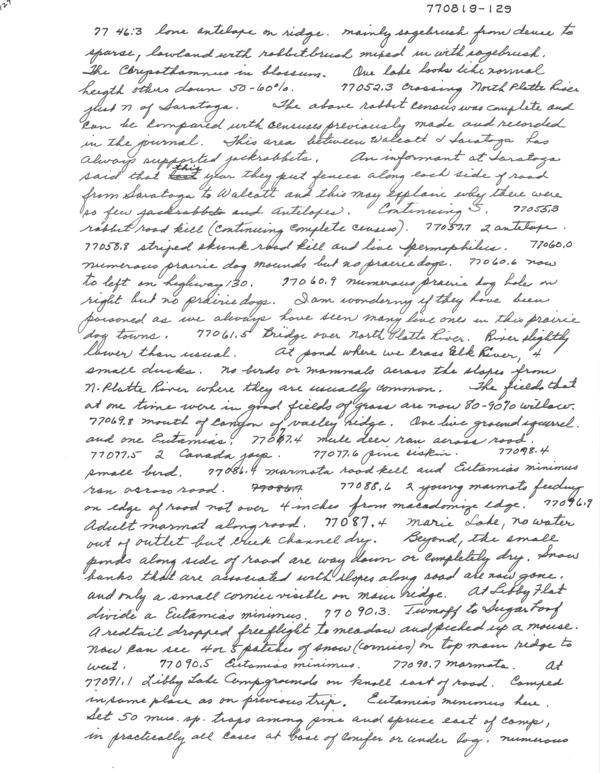 129
770819-129
77 46.3 lone antelope on ridge. mainly sagebrush from dense to
sparse, lowland with rabbitbrush mixed in with sagebrush.
The Chrysothamnus in blossum. One lake looks like normal
heigth others down 50-60%. 77052.3 crossing North Platte River
just N of Saratoga. The above rabbit census was complete and
can be compared with censuses previously made and recorded
in the journal. This area between Walcott & Saratoga has
always supported jackrabbits. An informant at Saratoga
said that this year they put fences along each side of road
from Saratoga to Walcott and this may explain why there were
so few jackrabbits and antelopes. Continuing S. 77055.3
rabbit road kill (continuing complete census). 77057.7 2 antelope.
77058.8 striped skunk road kill and live Spermophilis. 77060.0
numerous prairie dog mounds but no prairie dogs. 77060.6 now
to left on highway 130. 77060.9 numerous prairie dog holes on
right but no prairie dogs. I am wondering if they have been
poisoned as we always have seen many live ones in this prairie
dog towns. 77061.5 Bridge over North Platte River. River slightly
lower than usual. At pond where we cross Elk River, 4
small ducks. No birds or mammals across the slopes from
N. Platte River where they are usually common. The fields that
at one time were in good fields of grass are now 80-90% willow.
77069.8 mouth of Canyon of valley ridge. One live ground squirrel.
and one Eutamias. 77077.4 mule deer ran across road.
77077.5 2 Canada jays. 77077.6 pine siskin. 77098.4
small bird. 77086.4 marmota road kill and Eutamias minimus
ran across road. 77088.6 2 young marmots feeding
on edge of road not over 4 inches from macadomize edge. 77096.9
Adult marmot along road. 77087.4 Marie Lake, no water
out of outlet but creek channel dry. Beyond, the small
ponds along side of road are way down or completely dry. Snow
banks that are associated with slopes along road are now gone.
and only a small cornice visible on main ridge. At Libby Flat
divide a Eutamias minimus. 77090.3. Turnoff to Sugar Loaf
A redtail dropped free flight to meadow and picked up a mouse.
Now can see 4 or 5 patches of snow (cornices) on top main ridge to
west. 77090.5 Eutamias minimus. 77090.7 marmota. At
77091.1 Libby Lake Campgrounds on knoll east of road. Camped
in same place as on previous trip. Eutamias minimus here.
Set 50 mus. sp. traps among pine and spruce east of camp,
in practically all cases at base of conifer or under log. numerous